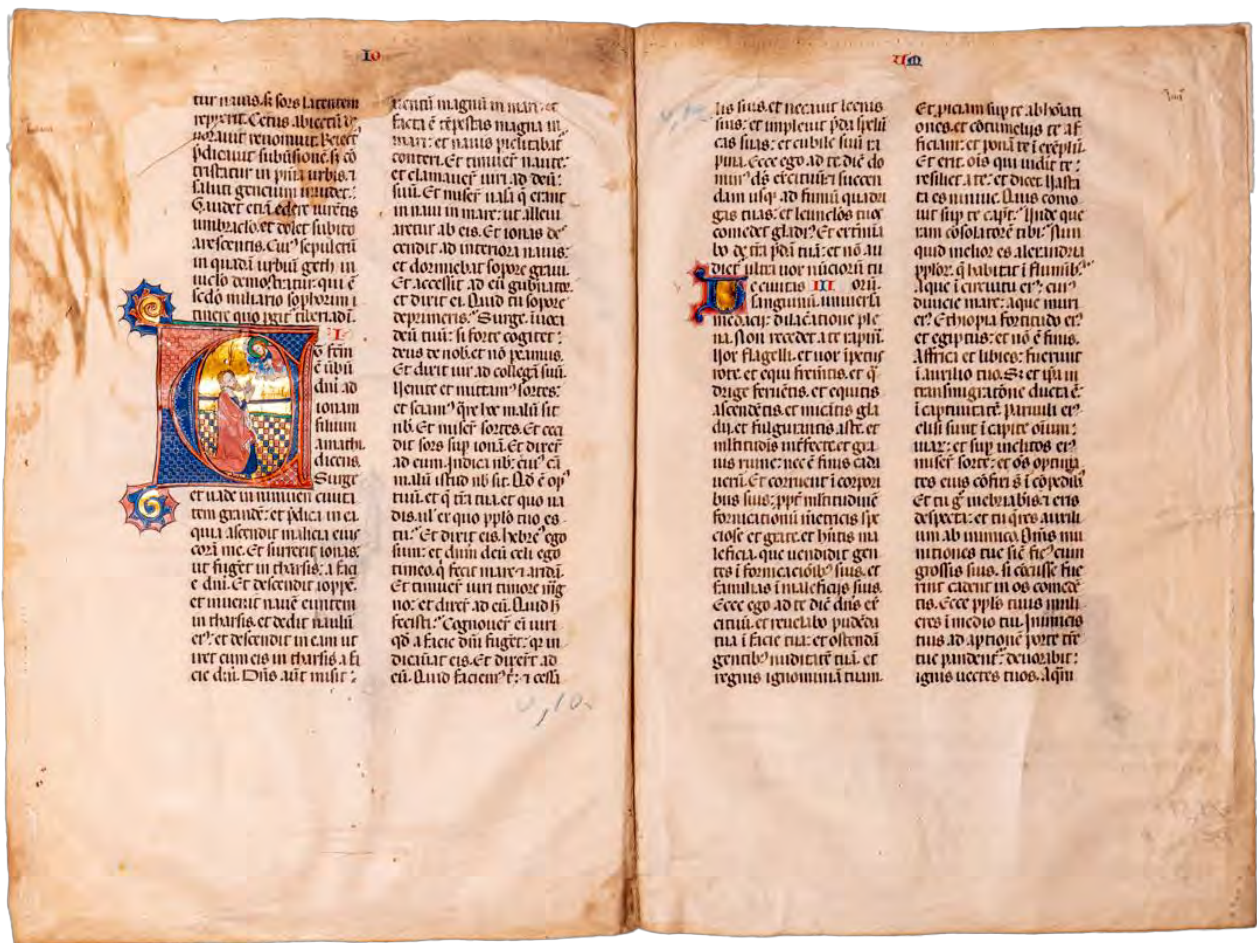 IO
tur nauis. ⁊ sors latentem
repperit. Cetus abiectū de
uorauit
p̄dicauit subūsionē. sꝫ cō
tristatur in p̄nia urbis. ⁊
saluti gencium inuidet.
Gaudet etiā edere uirētis
umbraclo. et dolet subito
arescentis. Cuiꝰ sepulcrū
in quadā urbiū geth in
uiclo demōstratur. qui ē
scdo miliario sophorim
tiberiadī.
I
fcm̄
ē ūbū
dn̄i ad
ionam
filium
amathi
dicens.
Surge
et uade in niniuen ciuita
tem grandē: et p̄dica in ea
quia ascendit malicia eius
corā me. Et surrexit ionas:
ut fuget in tharsis. a faci
e dn̄i. Et descendit ioppē.
et inuenit nauē euntem
in tharsis. et dedit naulū
eiꝰ: et descendit in eam ut
iret cum eis in tharsis a fa
cie dn̄i. Dn̄s aūt misit
uentū magnū in mari: et
facta ē tēpestas magna in
mari: et nauis piclitabat̄
conteri. Et timuer̄ naute:
et clamauer̄ uiri ad deū
suū. Et miser̄ uasa q̄ erant
in naui in mare: ut alleui
aretur ab eis. Et ionas des
cendit ad interiora nauis:
et dormiebat sopore graui.
Et accessit ad eū gubnator.
et dixit ei. Quid tu sopore
deprimeris: Surge. īuoca
deū tuū: si forte cogitet
deus de nob. et nō peamus.
Et dixit uir ad collegā suū.
Uenite et mittamꝰ sortes:
et sciamꝰ q̄re hoc malū sit
nb. Et miser̄ sortes. Et ceci
dit sors sup ionā. Et dixer̄
ad eum. Indica nb: cuiꝰ cā
malū istud nb sit. Qd̄ ē opꝰ
tuū. et q̄ t̄ra tua. et quo ua
dis. ul̄ ex quo pplo tuo es
tu: Et dixit eis. hebreꝰ ego
sum: et dn̄m deū celi ego
timeo. q̄ fecit mare ⁊ aridā.
Et timuer̄ uiri timore mag
no: et dixer̄ ad eū. Quid h̄
fecisti: Cognouer̄ ei uiri
qd̄ a facie dn̄i fuget: q̄ in
dicauat eis. Et dixer̄t ad
eū. Quid faciemꝰ t̄: ⁊ cessa
0,10.
UM
lis suis. et necauit leenis
suis: et impleuit p̄da spelū
cas suas: et cubile suū ra
pina. Ecce ego ad te dic̄ do
minꝰ ds̄ exercituū: ⁊ succen
dam usq̄ ad fumū quadri
gas tuas: et leunclōs tuos
comedet gladiꝰ Et extermina
bo de t̄ra p̄dā tuā: et nō au
diet̄ ultra uox nūciorū tu
e ciuitas III orū.
sanguinū. uniuersa
mēdacij: dilac̄atione ple
na. Non recedet a te rapin̄.
Uox flagelli. et uox īpetus
rote. et equi fremitis. et q̄
drige feruētis. et equitis
ascendētis. et micātis gla
dij. et fulgurantis aste. et
mltitudīs int̄fecte. et gra
uis ruine: nec ē finis cada
uerū. Et corruent ī corpori
bus suis: ppt̄ mltitudinē
fornicationū mer̄etricis spe
ciose et grate. et hn̄tis ma
leficia. que uendidit gen
tes ī fornicacōibꝰ suis. et
familias ī maleficijs suis.
Ecce ego ad te dic̄ dn̄s ex̄
cituū. et reuelabo pudēda
tua ī facie tua: et ostendā
gentibꝰ nuditatē tuā. et
regnis ignominiā tuam.
Et p̄iciam sup te abhoīati
ones. et cōtumelijs te af
ficiam: et ponā te ī exēplū.
Et erit. ois qui uidit te:
resiliet a te: et dicet. Uasta
ta es niniue. Quis como
uit sup te capt̄: Unde que
ram cōsolatorē tibi: Nun
quid melior es alexandria
pplor. q̄ habitat ī fluminibꝰ
Aque ī circuitu eiꝰ: cuiꝰ
diuicie mare: aque muri
eiꝰ. Ethiopia fortitudo eiꝰ
et egiptus: et nō ē finis.
Affrica et libies: fuerunt
ī auxilio tuo. Sꝫ et ip̄a in
transmigratōne ducta ē
ī captiuitatē. Paruuli eiꝰ
elisi sunt ī capite oīum
uiar̄: et sup inclitos eiꝰ
miser̄ sorte: et os̄ optima
tes eius cōfixi sꝫ ī copedibꝰ
Et tu ḡ inebriabis. ⁊ eris
despecta: et tu q̄res auxili
um ab inimico. Om̄s mu
nitiones tue sic̄ ficꝰ cum
grossis suis. si cōcusse fue
rint cadent in os comedē
tis. Ecce ppl̄s tuus muli
eres ī medio tui. Inimicis
tuis ad aptionē porte t̄re
tue pandent̄: deuorabit
ignis uectes tuos. Aqm̄